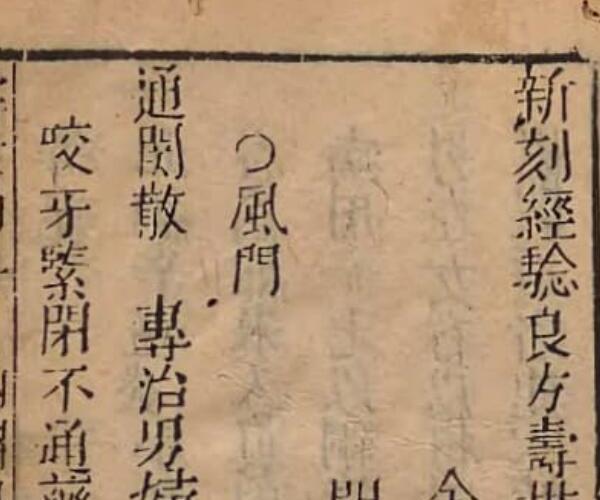 新刻經驗良方壽世
○風門
通関散 專治男婦
咬牙緊閉不通藥